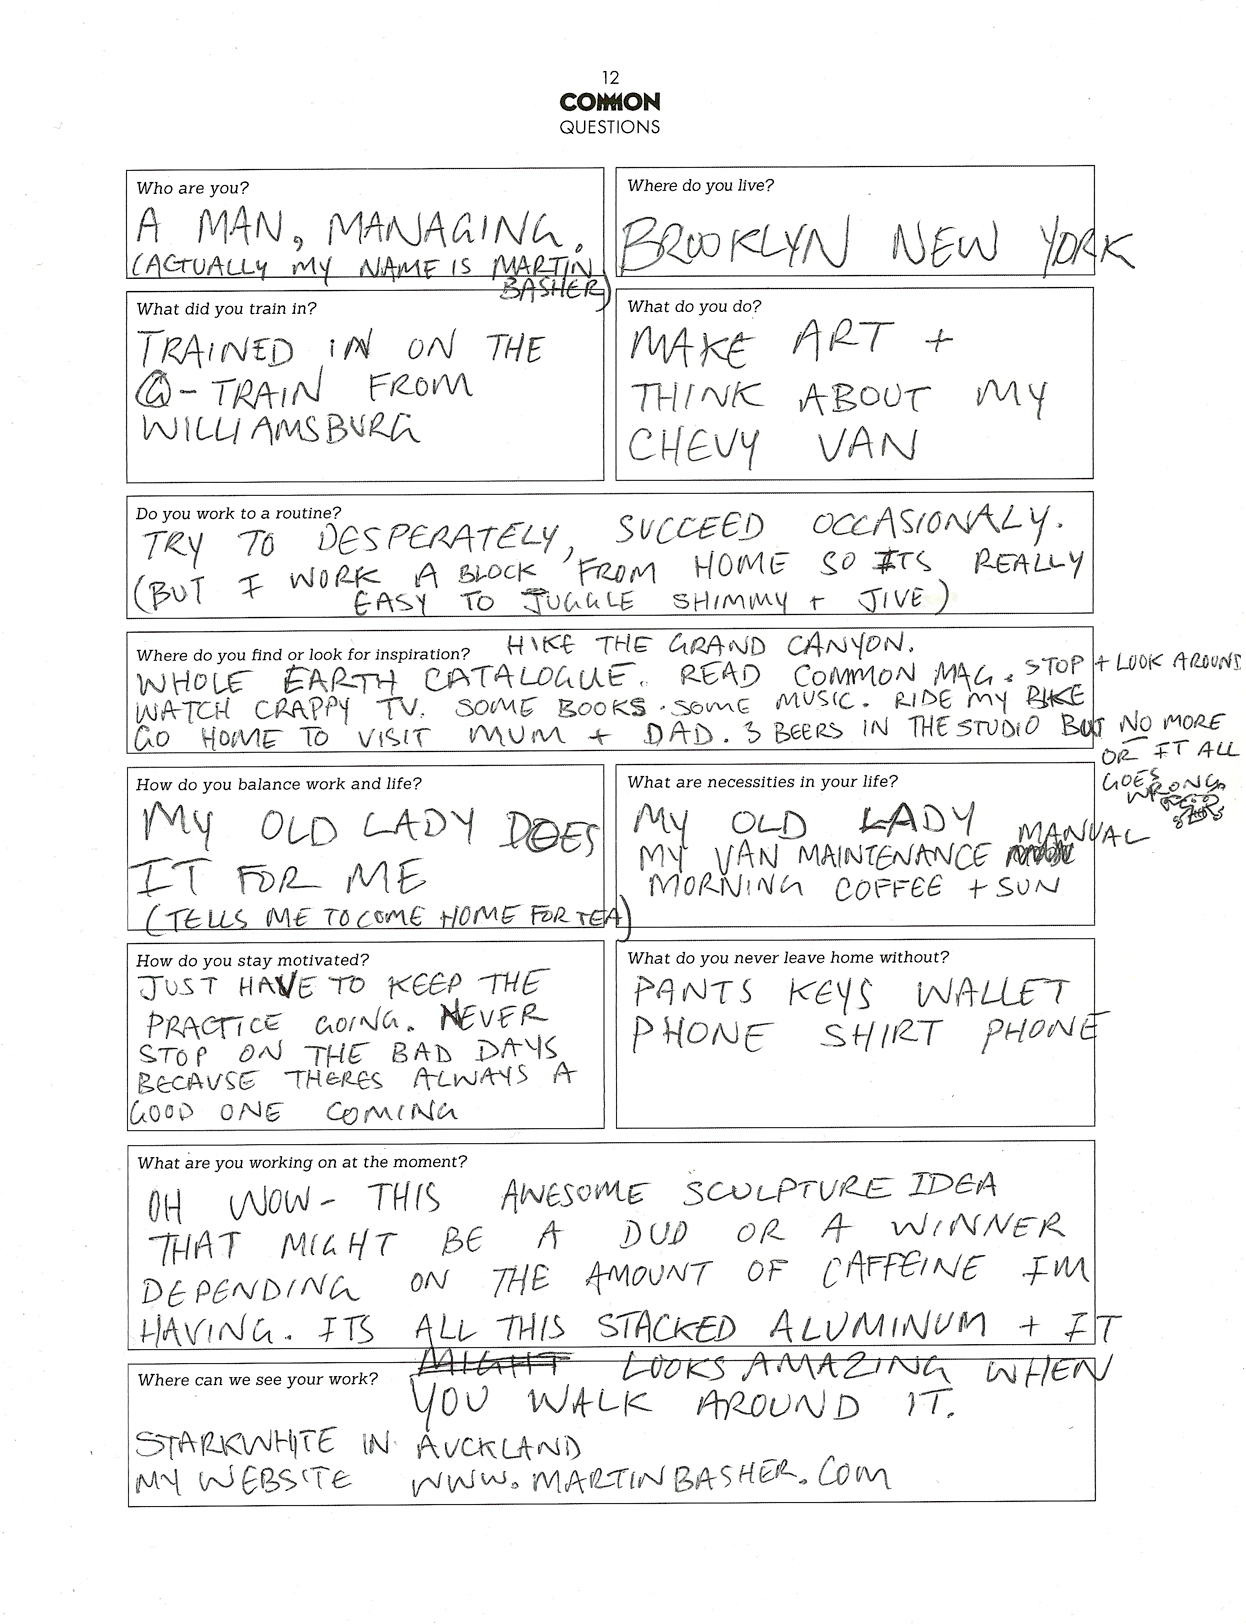 12
COMMON
QUESTIONS
Who are you?
A MAN, MANAGING.
(ACTUALLY MY NAME IS MARTIN
BASHER)
Where do you live?
BROOKLYN NEW YORK
What did you train in?
TRAINED IN ON THE
G-TRAIN FROM
WILLIAMSBURG
What do you do?
MAKE ART +
THINK ABOUT MY
CHEVY VAN
Do you work to a routine?
TRY TO DESPERATELY, SUCCEED OCCASIONALY.
(BUT I WORK A BLOCK FROM HOME SO ITS REALLY
EASY TO JUGGLE SHIMMY + JIVE)
Where do you find or look for inspiration?
HIKE THE GRAND CANYON.
WHOLE EARTH CATALOGUE. READ COMMON MAG. STOP + LOOK AROUND
WATCH CRAPPY TV. SOME BOOKS. SOME MUSIC. RIDE MY BIKE
GO HOME TO VISIT MUM + DAD. 3 BEERS IN THE STUDIO BUT NO MORE
OR IT ALL
GOES
WRONG
How do you balance work and life?
MY OLD LADY DOES
IT FOR ME
(TELLS ME TO COME HOME FOR TEA)
What are necessities in your life?
MY OLD LADY
MY VAN MAINTENANCE MANUAL
MORNING COFFEE + SUN
How do you stay motivated?
JUST HAVE TO KEEP THE
PRACTICE GOING. NEVER
STOP ON THE BAD DAYS
BECAUSE THERES ALWAYS A
GOOD ONE COMING
What do you never leave home without?
PANTS KEYS WALLET
PHONE SHIRT PHONE
What are you working on at the moment?
OH WOW- THIS AWESOME SCULPTURE IDEA
THAT MIGHT BE A DUD OR A WINNER
DEPENDING ON THE AMOUNT OF CAFFEINE IM
HAVING. ITS ALL THIS STACKED ALUMINUM + IT
MIGHT LOOKS AMAZING WHEN
YOU WALK AROUND IT.
Where can we see your work?
STARKWHITE IN AUCKLAND
MY WEBSITE WWW.MARTINBASHER.COM